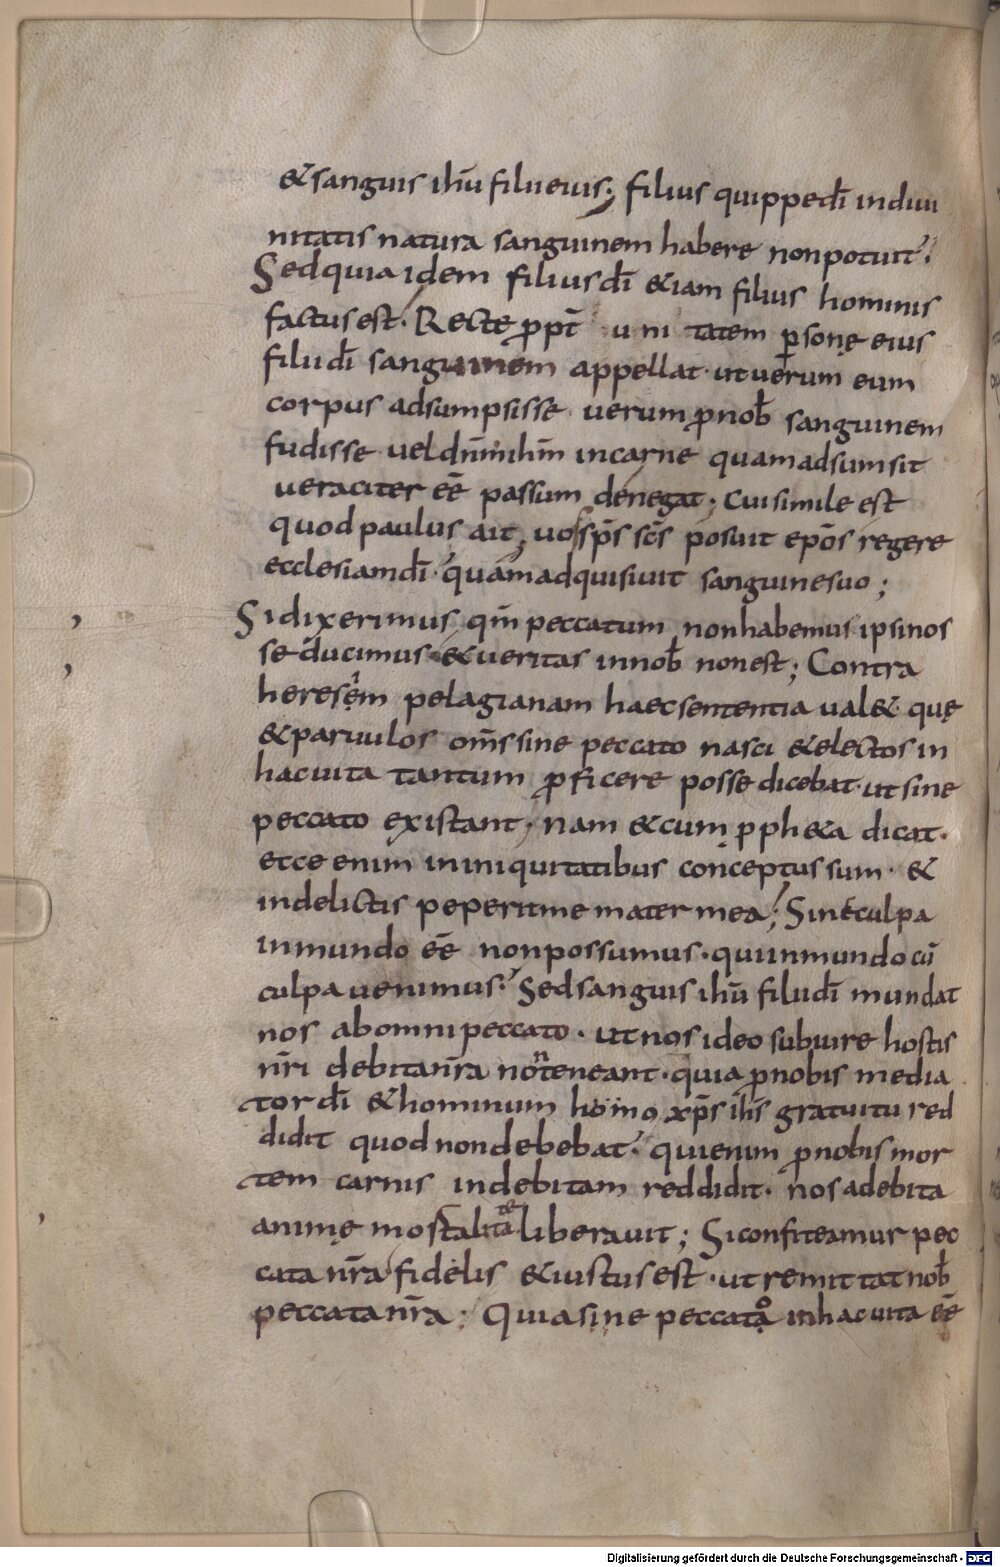 & sanguis ihū filii eius; filius quippe dī in diui
nitatis natura sanguinem habere non potuit.
Sed quia idem filius dī &iam filius hominis
factus est. Recte ꝓpt̄ unitatem ꝑsonę eius
filii dī sanguinem appellat. ut uerum eum
corpus adsumpsisse. uerum ꝓ nob̄ sanguinem
fudisse. uel dn̄m ihm̄ in carne quam adsumsit
ueraciter eē passum denegat; cui simile est
quod paulus ait, uos sp̄s sc̄s posuit ep̄os regere
ecclesiam dī. quam adquisiuit sanguine suo;
Si dixerimus qm̄ peccatum non habemus ipsi nos
seducimus. & ueritas in nob̄ non est; Contra
heresęm pelagianam haec sententia ual&. quę
& paruulos om̄s sine peccato nasci & electos in
hac uita tantum ꝓficere posse dicebat. ut sine
peccato existant. nam & cum pph&a dicat.
ecce enim in iniquitatibus conceptus sum. &
in delictis peperit me mater mea; Sine culpa
in mundo eē non possumus. qui in mundo cū
culpa uenimus. Sed sanguis ihū filii dī mundat
nos ab omni peccato. ut nos ideo sub iure hostis
nr̄i debita nr̄a non teneant. quia ꝓ nobis media
tor dī & hominum homo xp̄s ih̄s gratuitu red
didit quod non debebat. qui enim ꝓ nobis mor
tem carnis indebitam reddidit. nos a debita
animę mortalitate liberauit; Si confiteamur pec
cata nr̄a fidelis & iustus est. ut remittat nob̄
peccata nr̄a; Quia sine peccato in hac uita eē
Digitalisierung gefördert durch die Deutsche Forschungsgemeinschaft - DFG